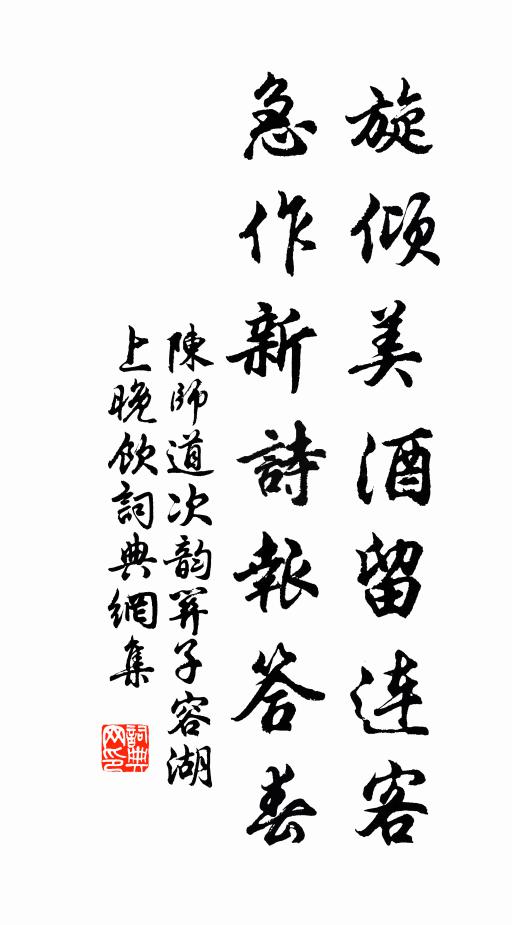 旋倾美酒留连客
急作新詩報答春
陳師道次韵関子容湖
上晚飲詞典網集
詞典
网印